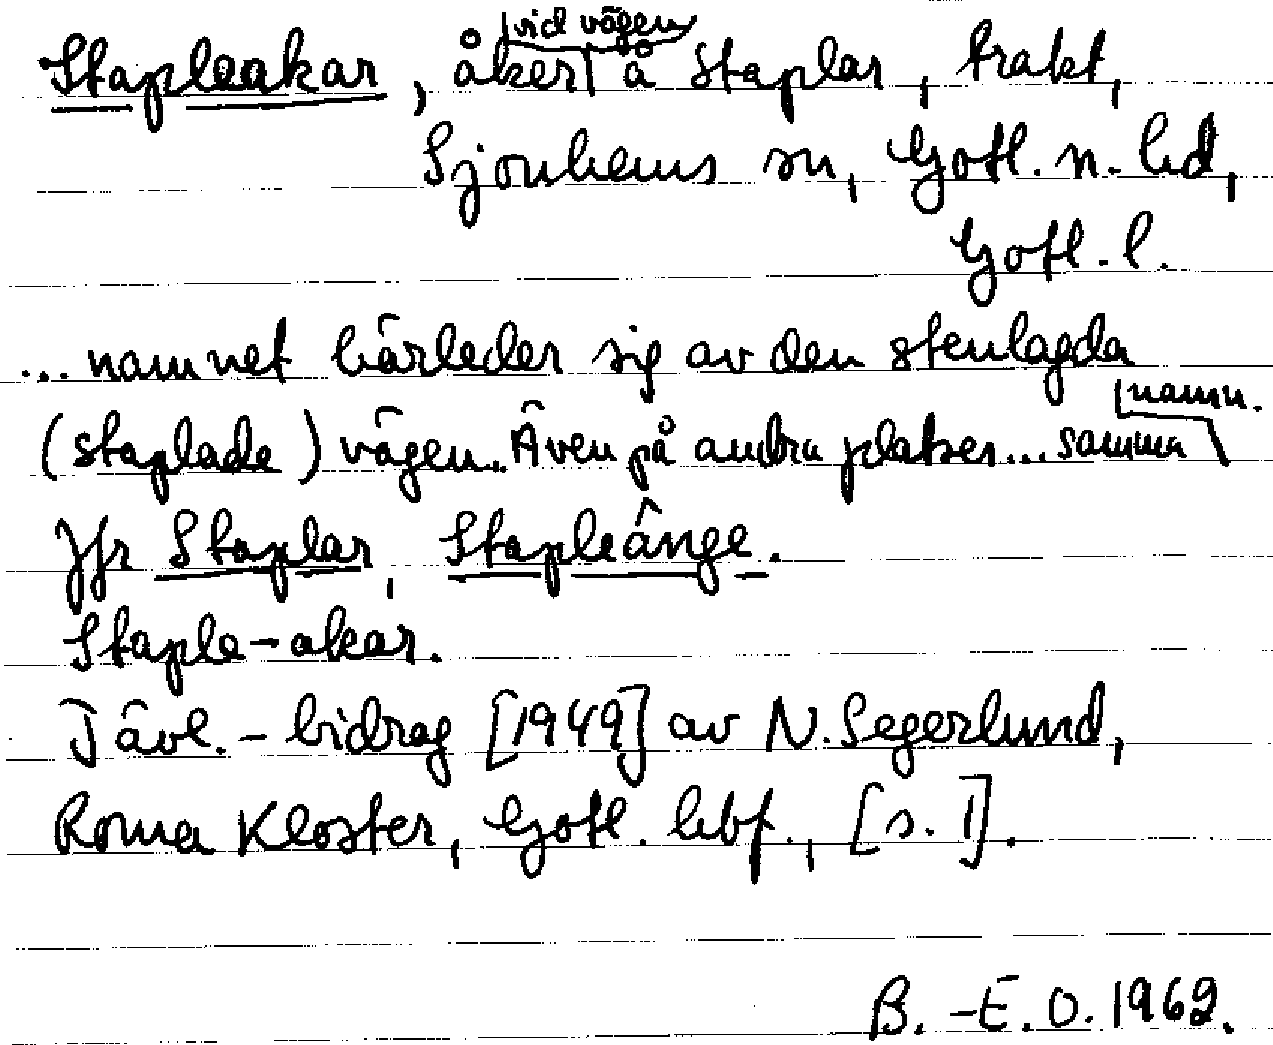 Stapleakar, åker vid vägen å Staplar, trakt,
Sjonhems sn, Gotl. n. hd,
Gotl. l.
... namnet härleder sig av den stenlagda
(staplade) vägen. Även på andra platser... samma namn.
Jfr Staplar, Stapleänge.
Staple-akar.
Tävl.-bidrag [1949] av N. Segerlund,
Roma Kloster, Gotl. hbf., [s. 1].
B.-E. O. 1962.